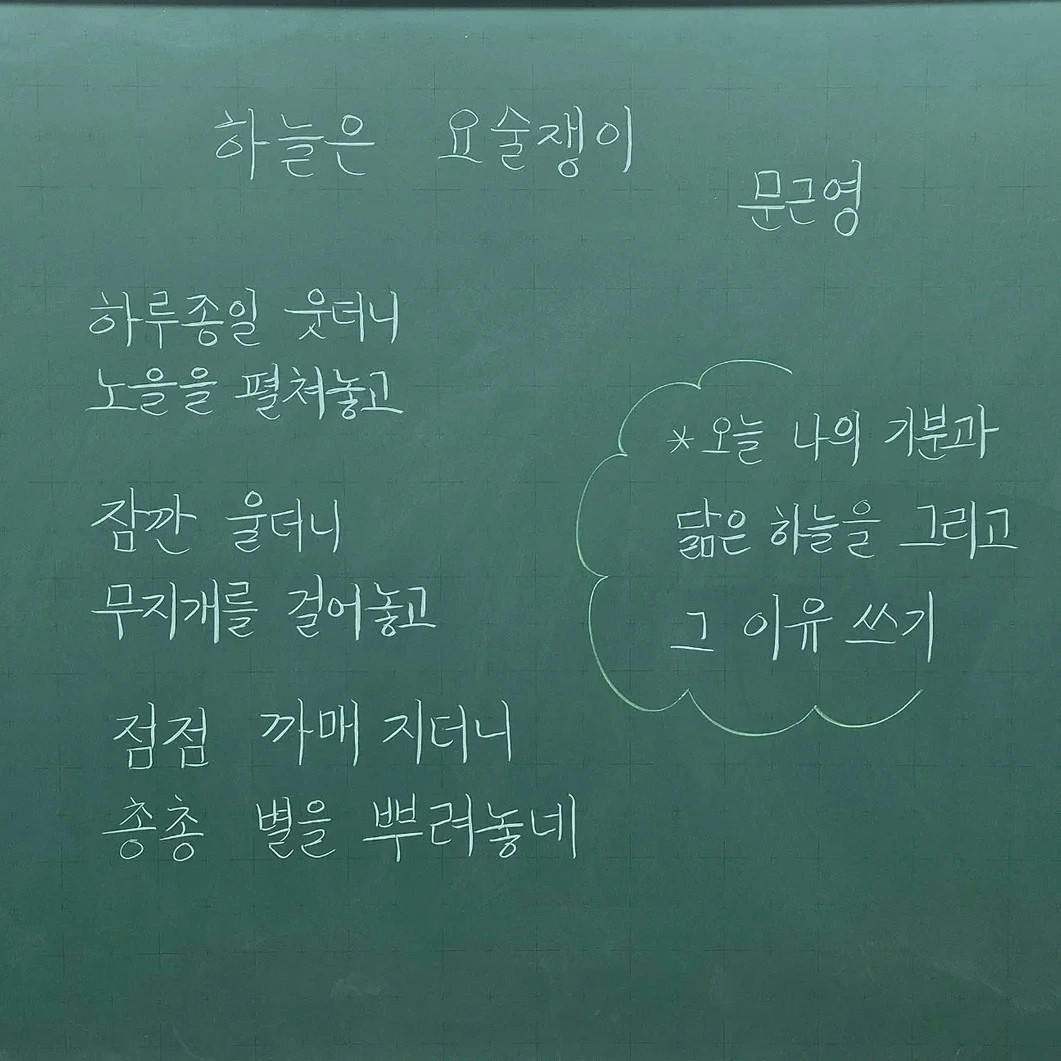 하늘은 요술쟁이
문근영
하루종일 웃더니
노을을 펼쳐놓고
잠깐 울더니
무지개를 걸어놓고
점점 까매 지더니
총총 별을 뿌려놓네
*오늘 나의 기분과
닮은 하늘을 그리고
그 이유 쓰기